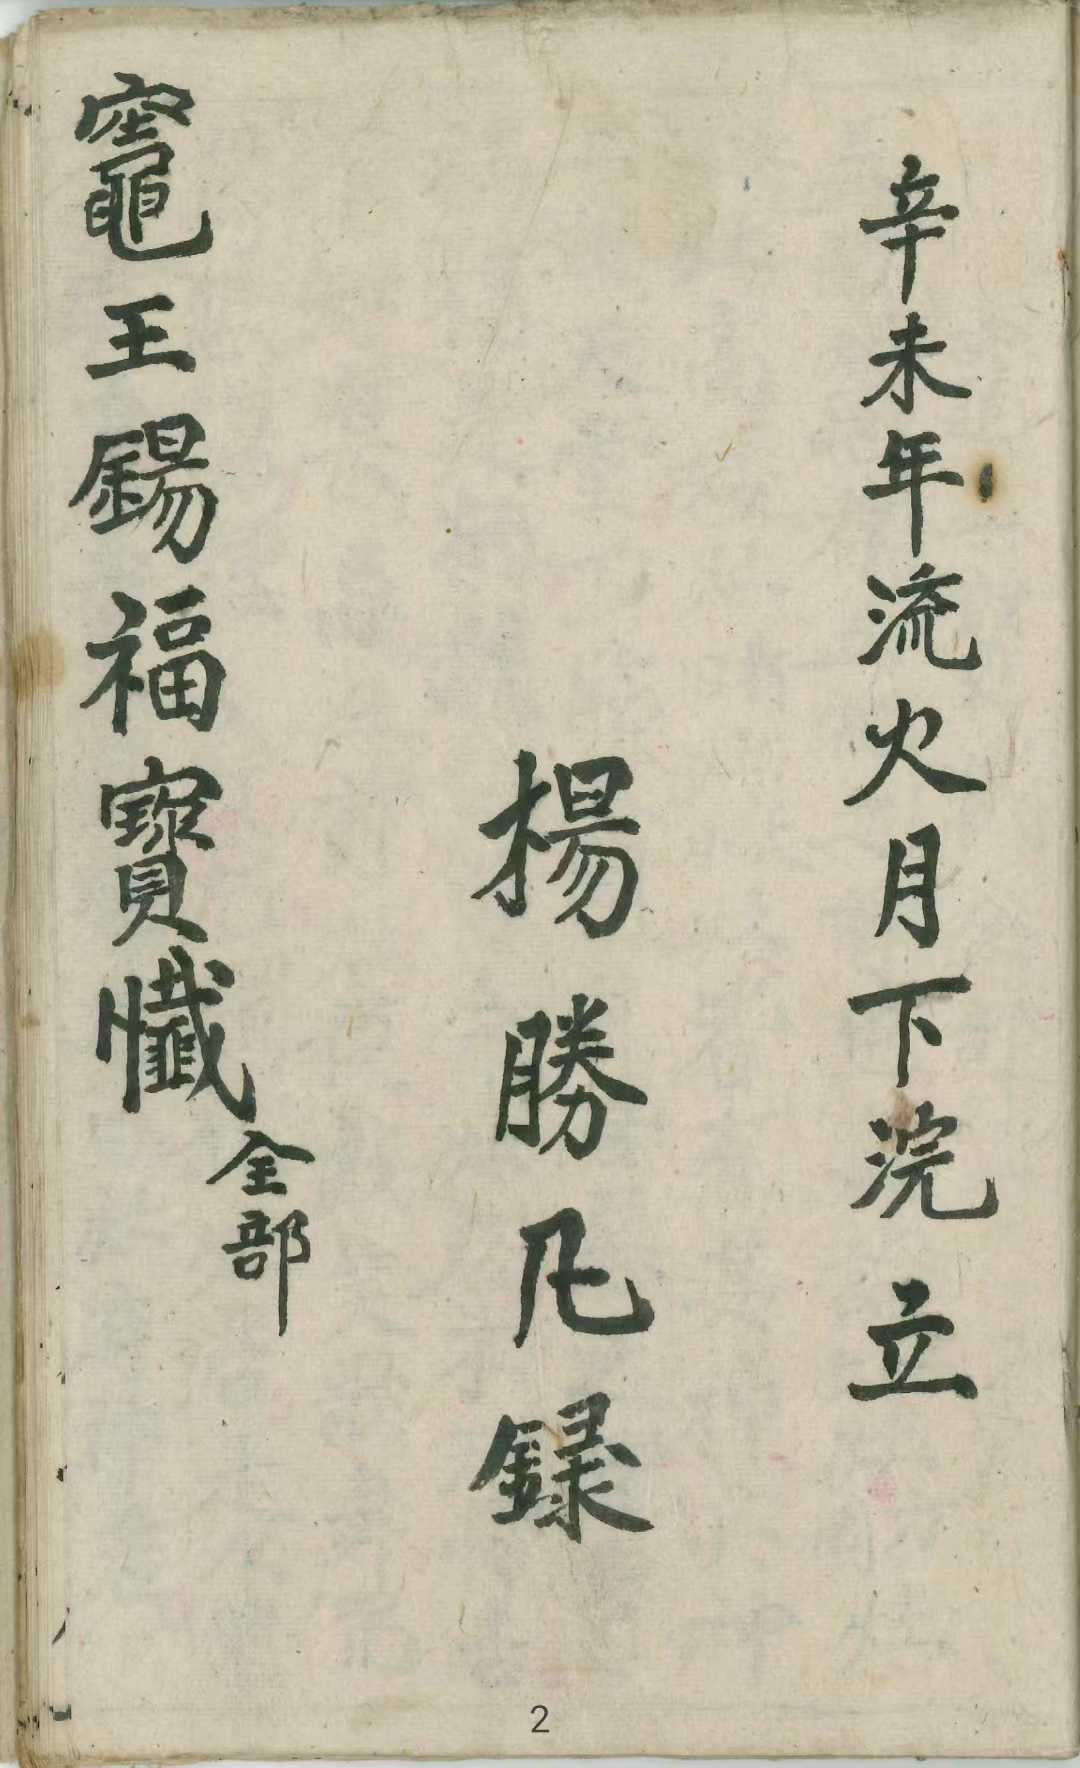 辛未年流火月下浣 立
楊勝凡錄
竈王錫福寶懺 全部
2